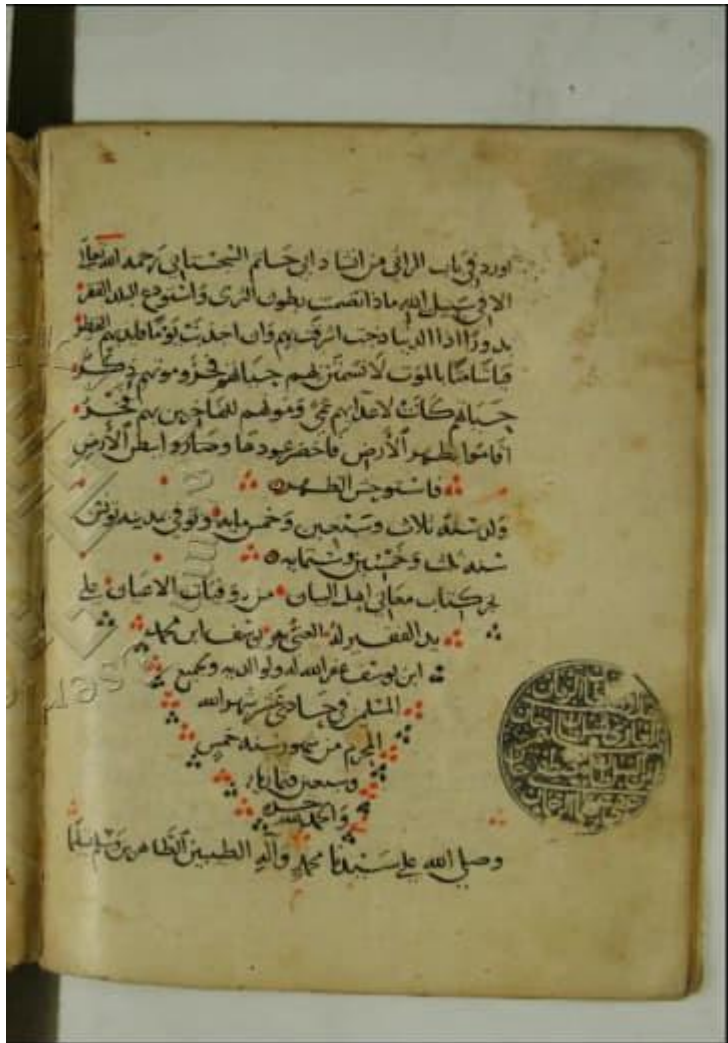 اورد في باب الراثي من انشاد ابي حاتم السجستاني رحمه الله تعالى
الا في سبيل الله ماذا تضمنت بطون الثرى واستودع البلد القفر
بدورًا اذا الدنيا دجت اشرقت بهم وان اجدبت يومًا فايديهم القطر
فيا شامتًا بالموت لا تشمتن بهم حياتهم فخر وموتهم ذكر
حياتهم كانت لاعدايهم عمى وموتهم للفاخرين بهم فخر
اقاموا بظهر الأرض فاخضر عودها وصاروا ببطن الأرض
فاستوحش الظهر
ولد سنة ثلاث وسبعين وخمس مايه وتوفي بمدينة تونس
سنه ثلث وخمسين وستمايه
نجز كتاب معاني اهل البيان من وفيات الاعيان على
يد الفقير لله الغني به يوسف ابن محمد
ابن يوسف غفر الله له ولوالديه ولجميع
المسلمين في حادي عشر شهر الله
المحرم من شهور سنه خمس
وسبعين وثمان مايه
والحمد لله
وصلى الله على سيدنا محمد وآله الطيبين الطاهرين وسلم تسليما